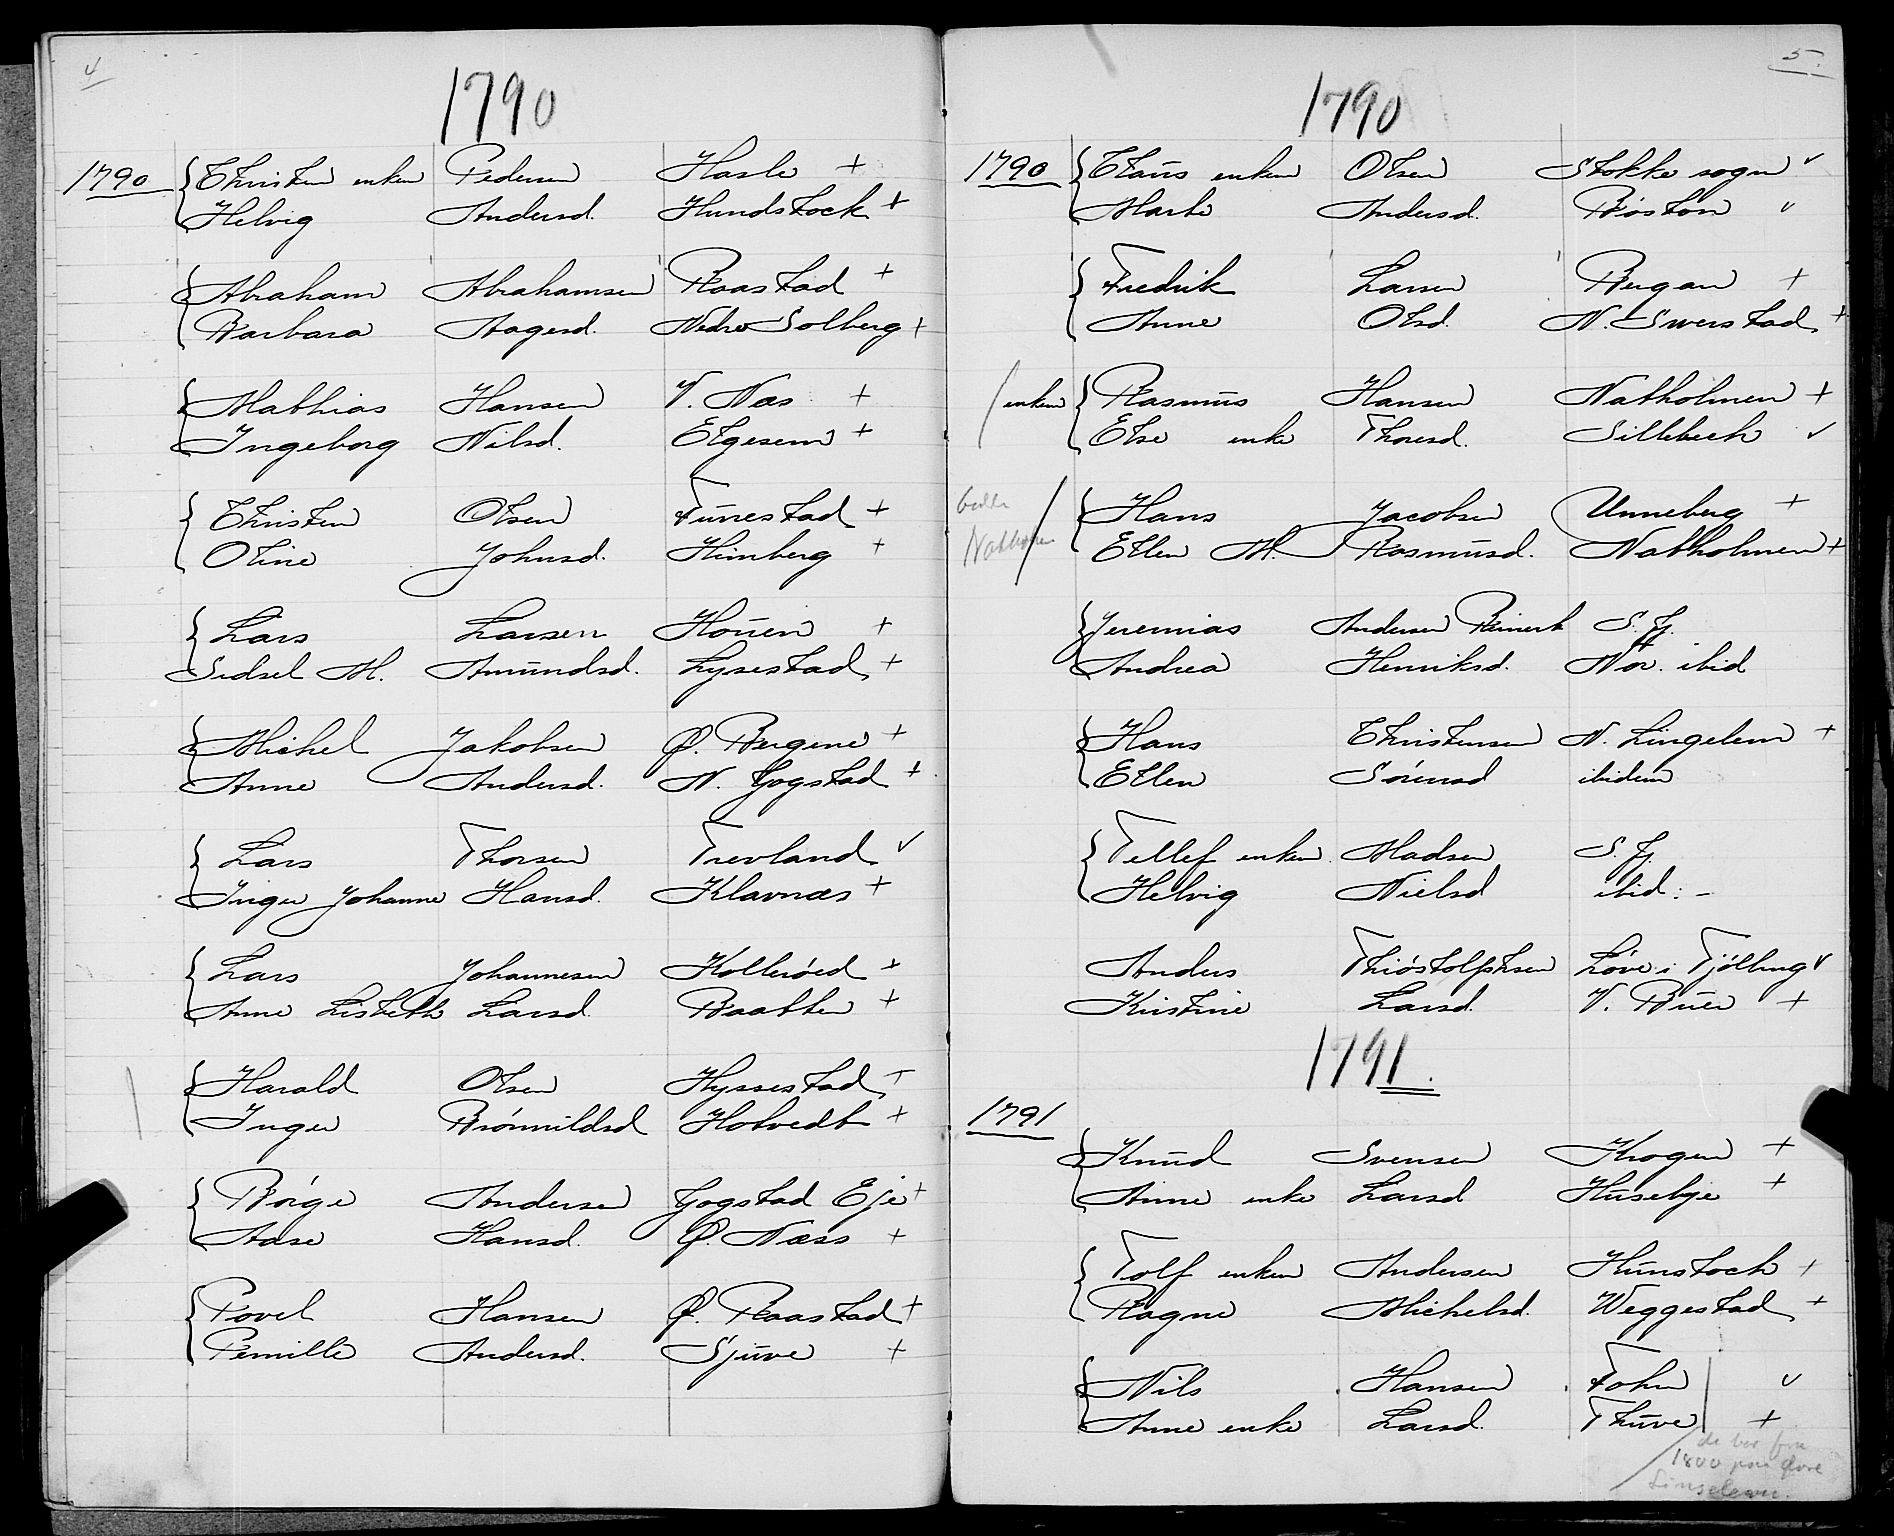 4
1790
1790 Christen enkem Pedersen Hasle +
Helvig Andersd. Hundstock +
Abraham Abrahamsen Raastad +
Barbara Aagesd. Nedre Solberg +
Mathias Hansen V. Nes +
Ingeborg Nilsd. Elgesem +
Christen Olsen Furrestad +
Oline Johnsd. Himberg +
Lars Larsen Houen +
Sidsel M. Amundsd. Lysestad +
Michel Jakobsen Ø. Bergene +
Anne Andersd. N. Gogstad +
Lars Thorsen Trevland v
Inger Johanne Hansd. Klavnæs +
Lars Johannesen Kolleröed +
Anne Lisbeth Larsd. Raatten +
Harald Olsen Hyssestad +
Inger Brönnildsd Hotvedt +
Börge Andersen Gogstad Eje +
Aase Hansd. Ø. Næss +
Povel Hansen Ø. Raastad +
Pernille Andersd. Sjuve +
5.
1790
1790 Claus enkem Olsen Stokke sogn v
Marte Andersd. Röston v
Fredrik Larsen Bergan +
Anne Olsd. N. Sverstad +
enkem Rasmus Hansen Natholmen +
Else enke Thoresd. Sillebech v
Hans Jacobsen Unneberg +
Natholmen Ellen M. Rasmusd. Natholmen +
Jeremias Andersen Reinert S. Fj.
Andrea Henriksd. Nov. ibid
Hans Christensen N. Lingelem +
Ellen Sörensd ibidem
Tellef enkem Madsen S. Fj.
Helvig Nielsd ibid: -
Anders Thióstolphsen Löve i Tjölling v
Kristine Larsd. V. Buer +
1791.
1791
Knud Svensen Krogen +
Anne enke Larsd Husebye +
Tolf enkem Andersen Hunstock +
Ragne Michelsd. Weggestad +
Nils Hansen Fohn v
Anne enke Larsd. Thuve +
de bor fra
1800 paa Øvre
Lingelem.